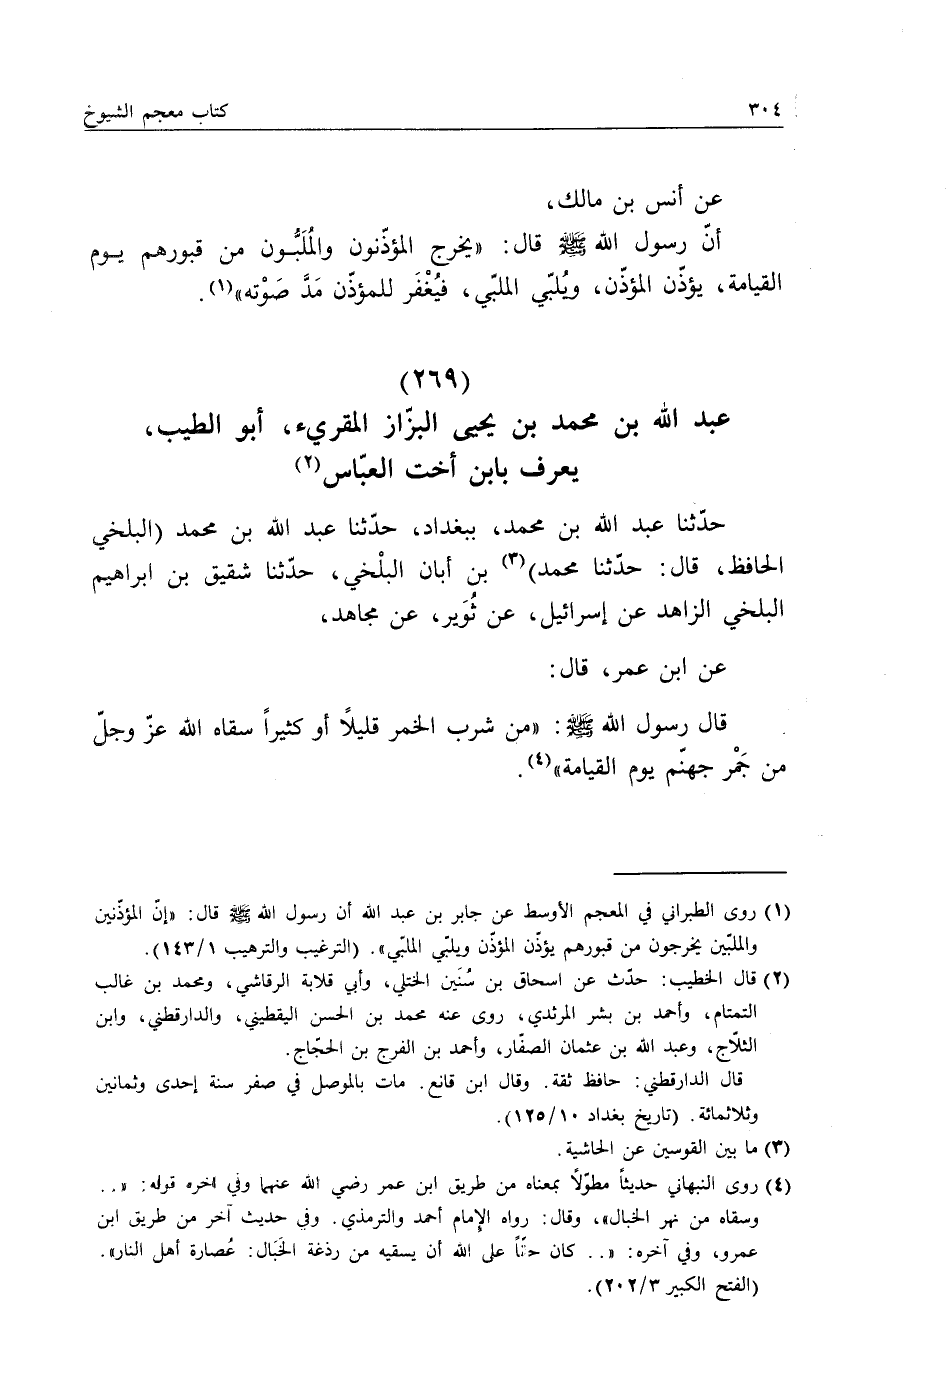 ٣٠٤ كتاب معجم الشيوخ
عن أنس بن مالك،
أنّ رسول الله ﷺ قال: «يخرج المؤذّنون والمُلَبُّون من قبورهم يـوم
القيامة، يؤذّن المؤذّن، ويُلبّي الملبّي، فيُغْفَر للمؤذّن مَدَّ صَوْته»(١).
(٢٦٩)
عبد الله بن محمد بن يحيى البزّاز المقريء، أبو الطيب،
يعرف بابن أخت العبّاس(٢)
حدّثنا عبد الله بن محمد، ببغداد، حدّثنا عبد الله بن محمد (البلخي
الحافظ، قال: حدّثنا محمد)(٣) بن أبان البلْخي، حدّثنا شقيق بن ابراهيم
البلخي الزاهد عن إسرائيل، عن ثُوَير، عن مجاهد،
عن ابن عمر، قال:
قال رسول الله ﷺ: «من شرب الخمر قليلًا أو كثيراً سقاه الله عزّ وجلّ
من جَمْر جهنّم يوم القيامة»(٤).
(١) روى الطبراني في المعجم الأوسط عن جابر بن عبد الله أن رسول الله ﷺ قال: «إنّ المؤذّنين
والملبّين يخرجون من قبورهم يؤذّن المؤذّن ويلبّي الملبّي». (الترغيب والترهيب ١/١٤٣).
(٢) قال الخطيب: حدّث عن اسحاق بن سُنَين الختلي، وأبي قلابة الرقاشي، ومحمد بن غالب
التمتام، وأحمد بن بشر المرثدي، روى عنه محمد بن الحسن اليقطيني، والدارقطني، وابن
الثلّاج، وعبد الله بن عثمان الصفّار، وأحمد بن الفرج بن الحجّاج.
قال الدارقطني: حافظ ثقة. وقال ابن قانع. مات بالموصل في صفر سنة إحدى وثمانين
وثلاثمائة. (تاريخ بغداد ١٠/١٢٥).
(٣) ما بين القوسين عن الحاشية.
(٤) روى النبهاني حديثاً مطوّلًا بمعناه من طريق ابن عمر رضي الله عنهما وفي اخره قوله: «..
وسقاه من نهر الخبال»، وقال: رواه الإمام أحمد والترمذي. وفي حديث آخر من طريق ابن
عمرو، وفي آخره: «.. كان حتّاً على الله أن يسقيه من رذغة الخَبَال: عُصارة أهل النار».
(الفتح الكبير ٣/٢٠٢).